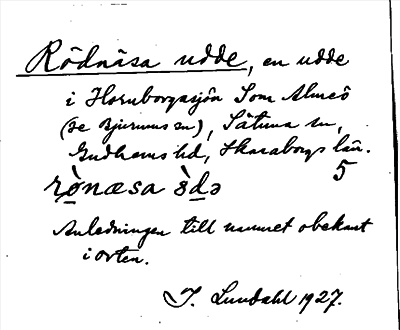 Rödnäsa udde, en udde
i Hornborgasjön som Almeö
(se Bjurums sn), Sätuna sn,
Gudhems hd, Skaraborgs län.
5
rò̱næsa ò̱də
Anledningen till namnet obekant
i orten.
J. Lundahl 1927.